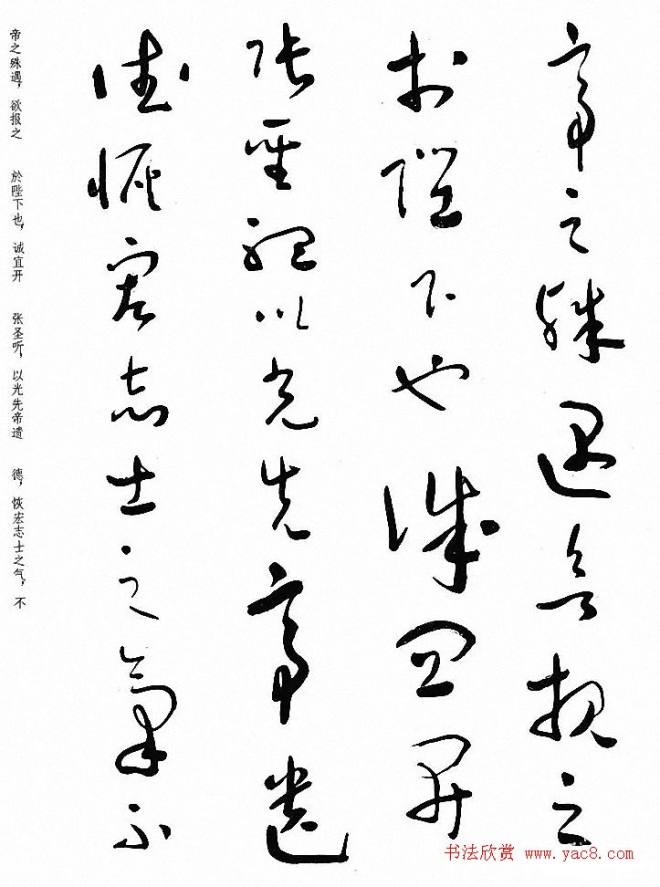 帝之殊遇欲报之
於陛下也诚宜开
张圣听以光先帝遗
德恢宏志士之气不
帝之殊遇，欲报之　於陛下也，诚宜开　张圣听，以光先帝遗　德，恢宏志士之气，不
书法欣赏 www.yac8.com